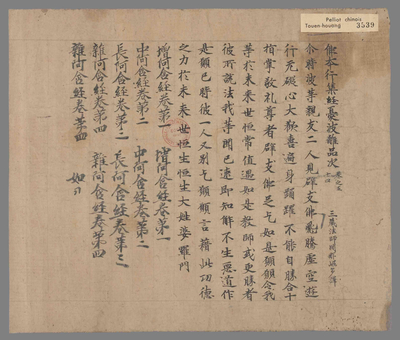 Pelliot chinois
Touen-houang 3539
佛本行集經憂波離品次
三藏法師闍那崛多譯
尒時彼等親友二人見辟支佛飛騰虛空遊
行无礙心大歡喜遍身踊躍不能自勝合十
指掌敬礼尊者辟支佛足乞如是願願令我
等於未來世恒常值遇如是教師或更勝者
彼所說法我等聞已速即知解不生惡道作
是願已時彼一人又別乞願願言藉此功德
之力於未來世恒生恒生大姓婆羅門
增阿含經卷第一 增阿含經卷第一
中阿含經卷第二 中阿含經卷第二
長阿含經卷第三 長阿含經卷第三
雜阿含經卷第四 雜阿含經卷第四
雜阿含經卷第四 如刀